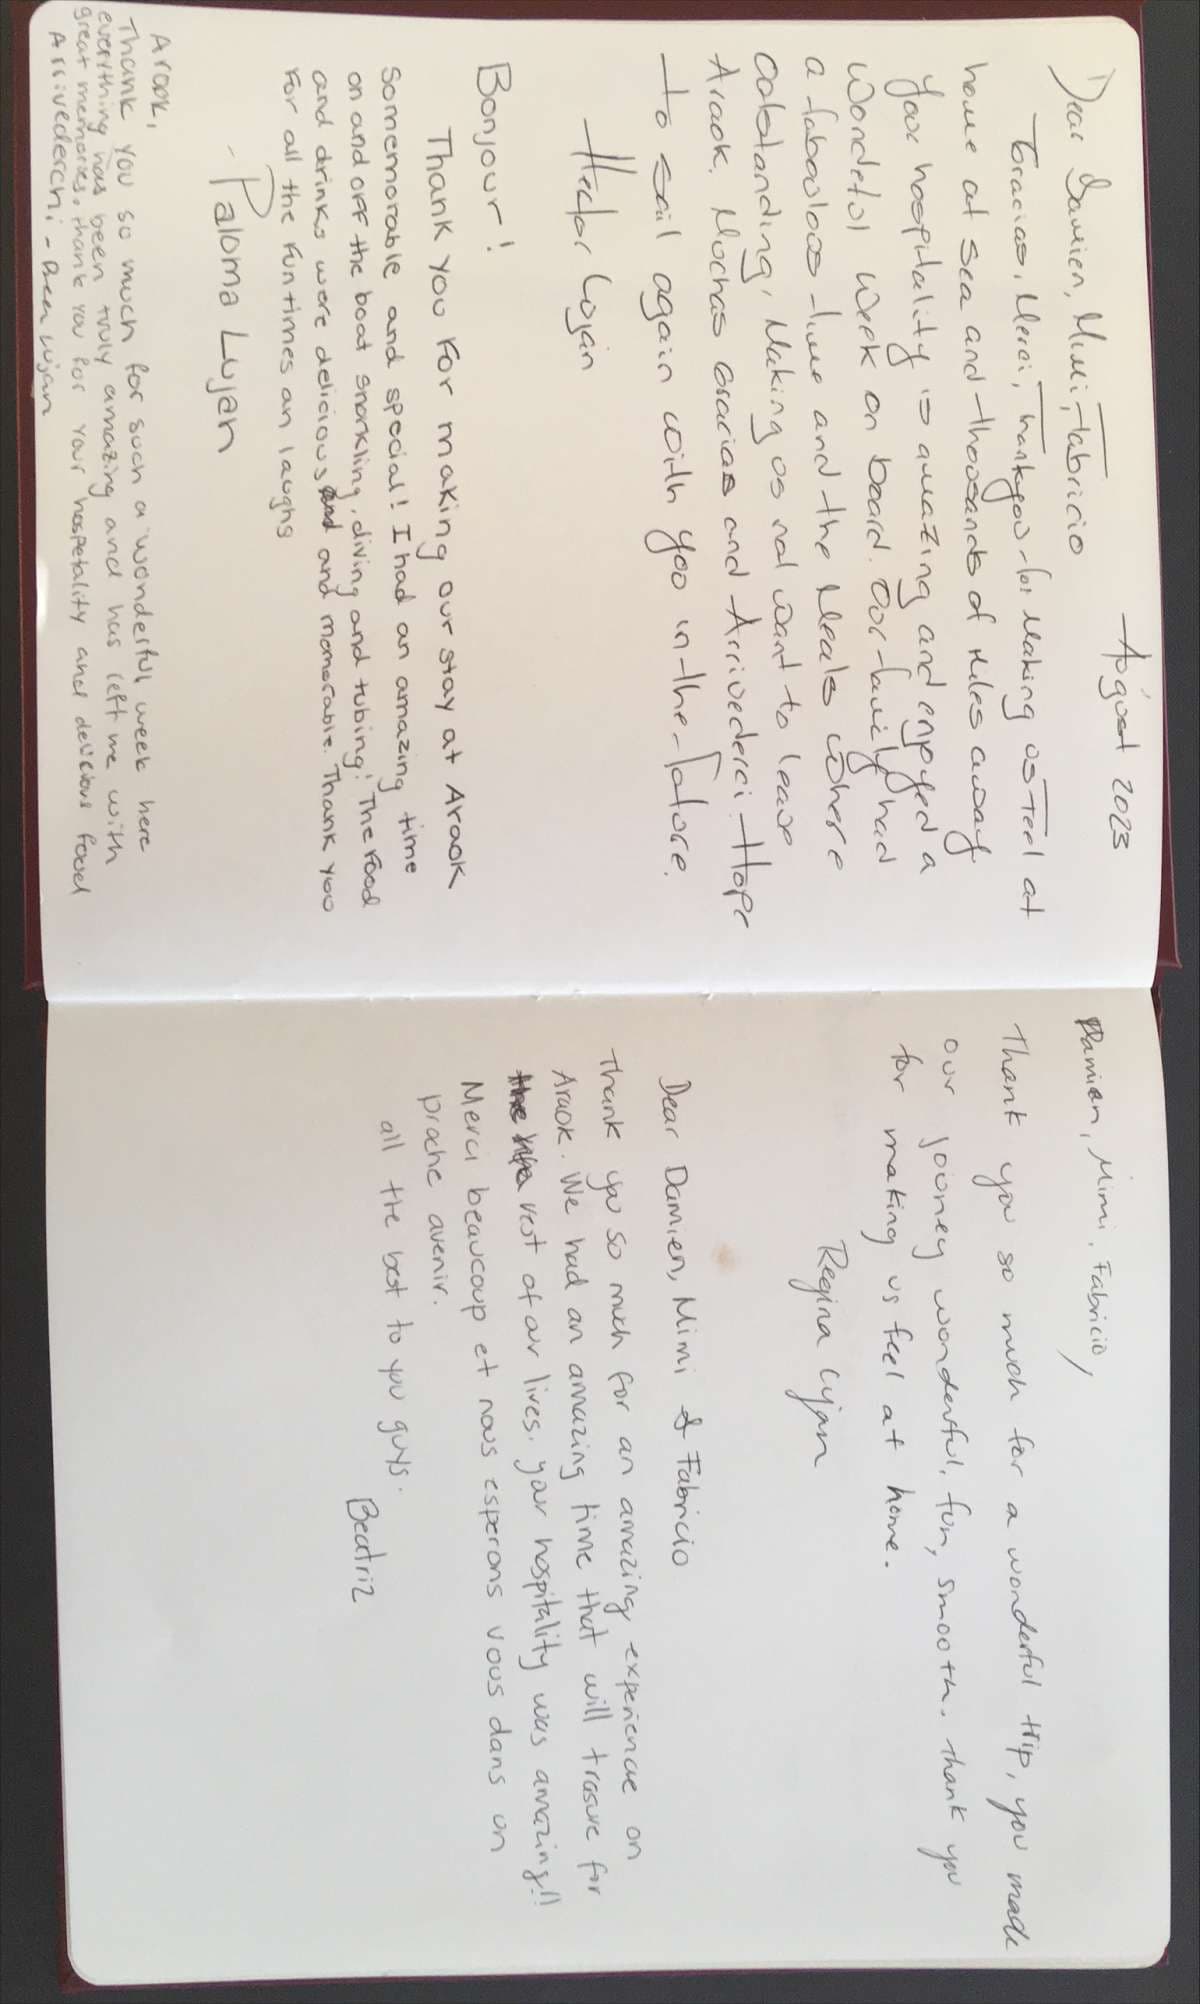 August 2023
Dear Damien, Mimi, Fabricio
Gracias, Merci, Thankyou for Making us Feel at
home at sea and thousands of Miles away
Your hospitality is amazing and enjoyed a
Wondeful Week on board. Our family had
a fabolous time and the Meals where
Oatstanding, Making us not want to leave
Araok. Muchas Gracias and Arrivederci. Hope
to sail again with you in the future.
Hector Lujan
Bonjour!
Thank You For making our stay at Araok
So memorable and special! I had an amazing time
on and off the boat snorkling, diving and tubing! The Food
and drinks were delicious and and memorable. Thank You
For all the Fun times an laughs
- Paloma Lujan
Araok,
Thank you so much for such a wonderful week here
everything has been truly amazing and has left me with
great memories, thank you for your hospetality and delicious food
Arrivederchi - Lujan
Damien, Mimi, Fabricio,
Thank you so much for a wonderful trip, you made
our joirney wonderful, fun, smooth. thank you
for making us feel at home.
Regina Lujan
Dear Damien, Mimi & Fabricio
Thank you so much for an amazing experience on
Araok. We had an amazing time that will trasure for
the rest of our lives, your hospitality was amazing!!
Merci beaucoup et nous esperons vous dans un
proche avenir.
all the best to you guys.
Beatriz